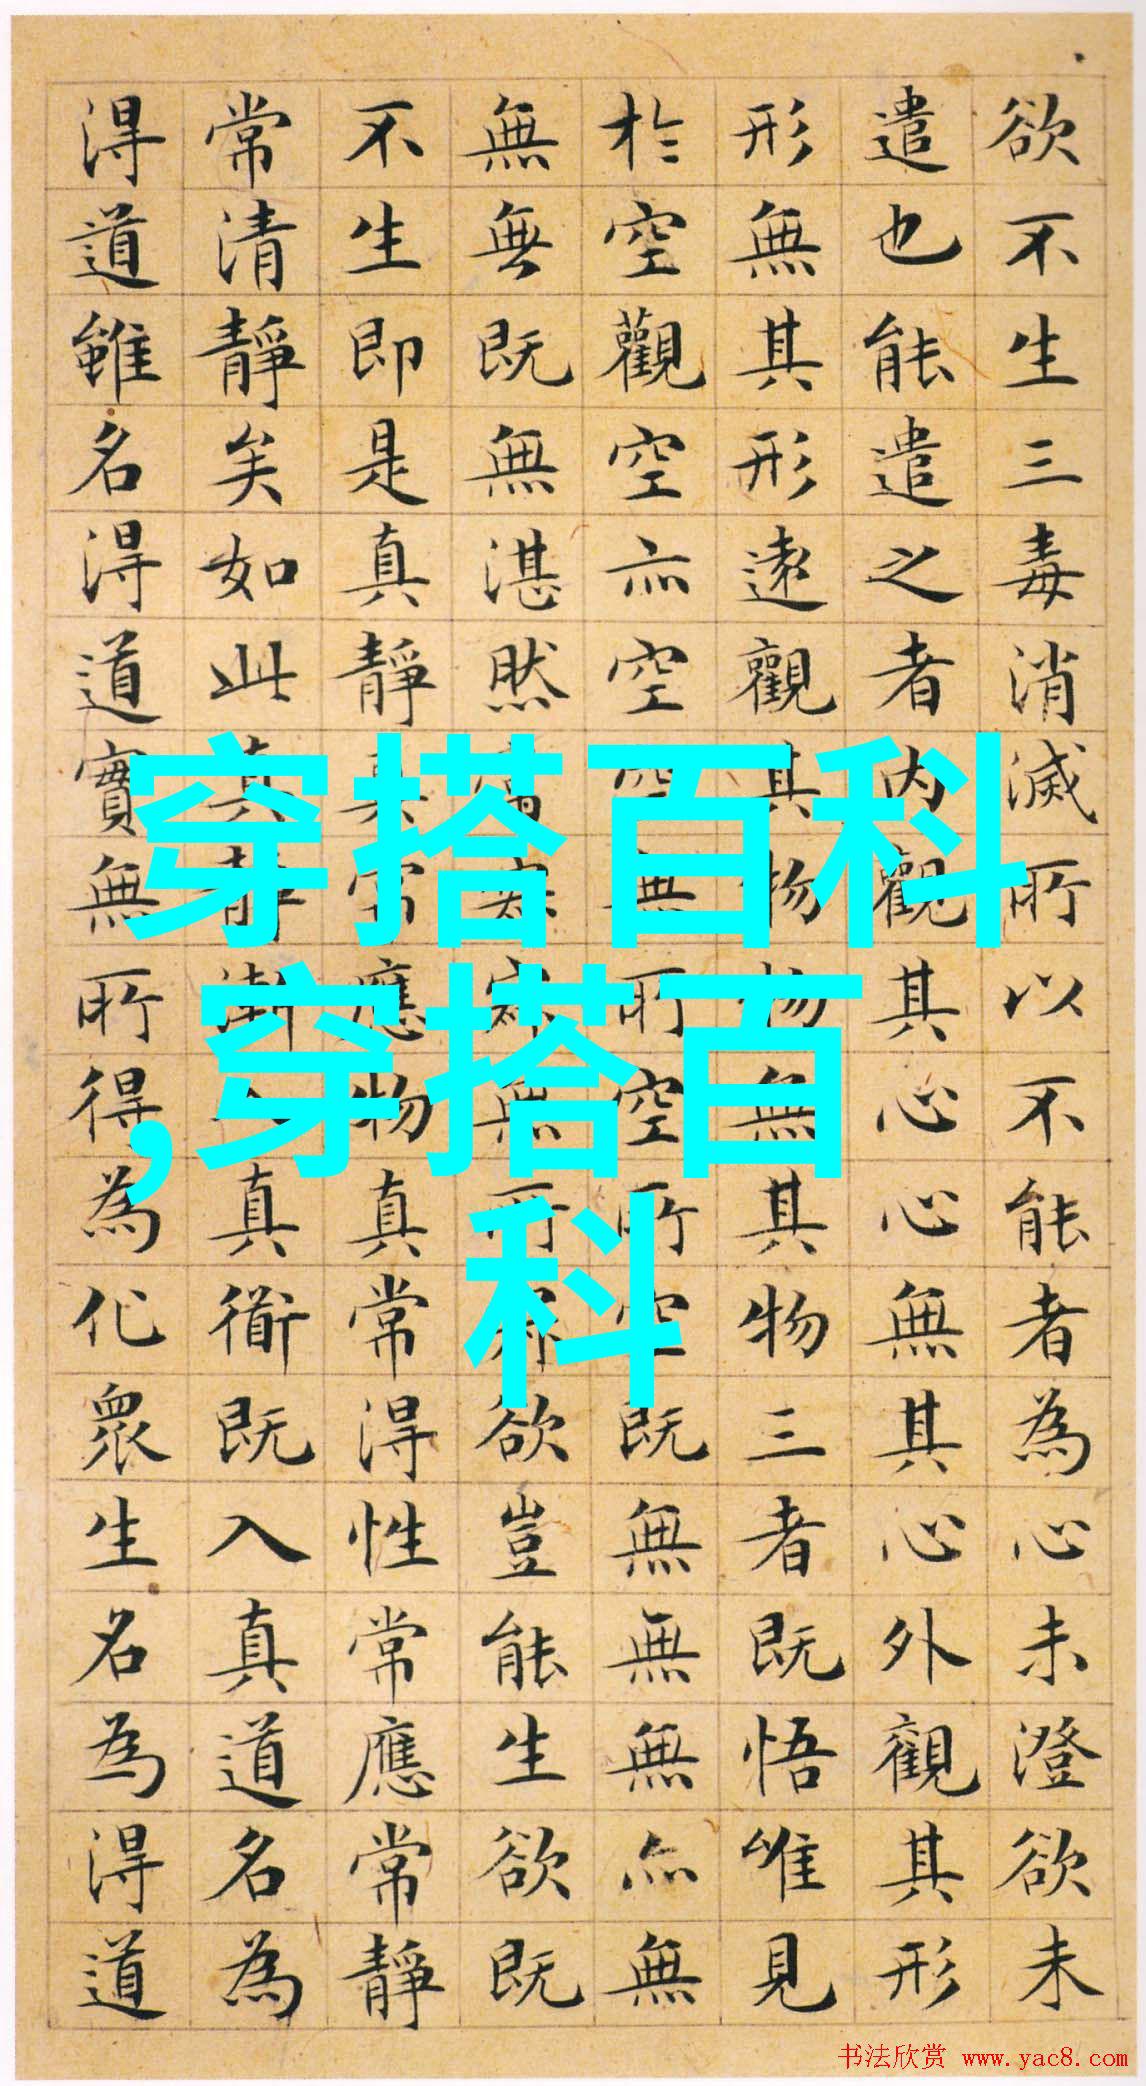 欲不生三毒消滅所以不能者為心未澄欲未
遣也能遣之者內觀其心心無其心外觀其形
形無其形遠觀其物物無其物三者既悟唯見
於空觀空亦空空無所空所空既無無無亦無
無無既無湛然常寂寂無所寂欲豈能生欲既
不生即是真靜真常應物真常得性常應常靜
常清靜矣如此真靜漸入真衜既入真道名為
得道雖名得道實無所得為化眾生名為得道
穿搭百科
,穿搭百
科
书法欣赏 www.yac8.com